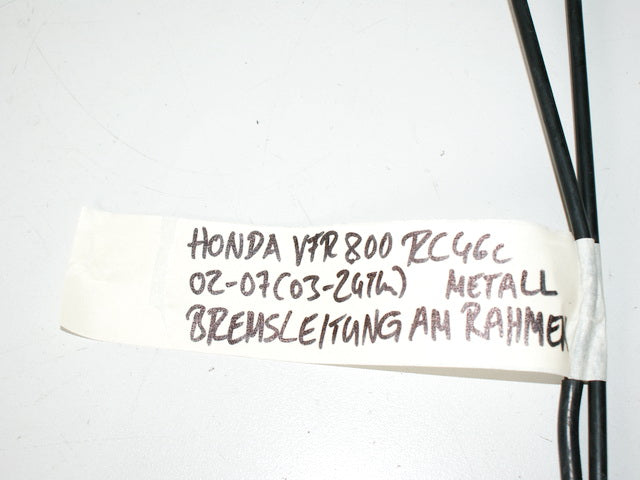 HONDA VFR 800 RC46c
02-07 (03-24TKM) METALL
BREMSLEITUNG AM RAHMEN